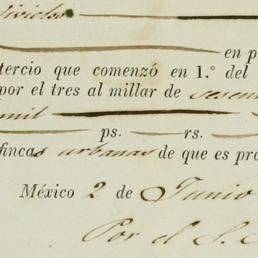 en p
tercio que comenzó en 1.º del
por el tres al millar de sesen
mil
ps. rs.
fincas urbanas de que es pro
México 2 de Junio
Por el S.